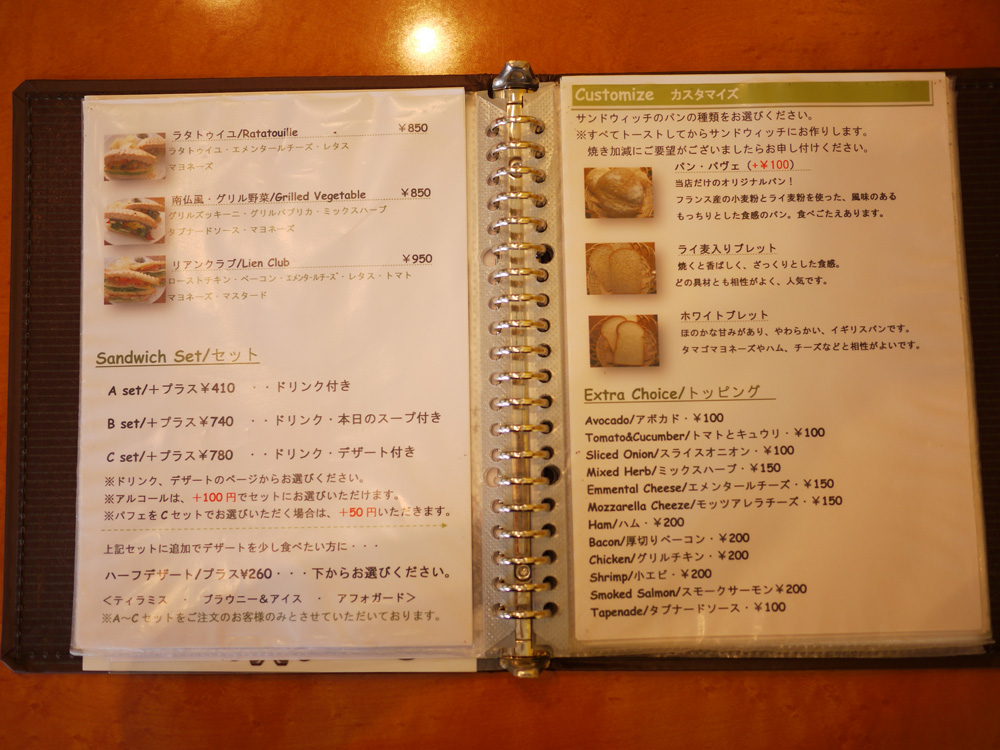 ラタトゥイユ/Ratatouille ￥850
ラタトゥイユ・エメンタールチーズ・レタス
マヨネーズ
南仏風・グリル野菜/Grilled Vegetable ￥850
グリルズッキーニ・グリルパプリカ・ミックスハーブ
タプナードソース・マヨネーズ
リアンクラブ/Lien Club ￥950
ローストチキン・ベーコン・エメンタールチーズ・レタス・トマト
マヨネーズ・マスタード
Sandwich Set/セット
A set/＋プラス￥410 ・・ドリンク付き
B set/＋プラス￥740 ・・ドリンク・本日のスープ付き
C set/＋プラス￥780 ・・ドリンク・デザート付き
※ドリンク、デザートのページからお選びください。
※アルコールは、＋100円でセットにお選びいただけます。
※パフェをCセットでお選びいただく場合は、＋50円いただきます。
上記セットに追加でデザートを少し食べたい方に・・・
ハーフデザート/プラス¥260・・・下からお選びください。
＜ティラミス ・ ブラウニー＆アイス ・ アフォガード＞
※A～Cセットをご注文のお客様のみとさせていただいております。
Customize カスタマイズ
サンドウィッチのパンの種類をお選びください。
※すべてトーストしてからサンドウィッチにお作りします。
焼き加減にご要望がございましたらお申し付けください。
パン・パヴェ（+￥100）
当店だけのオリジナルパン！
フランス産の小麦粉とライ麦粉を使った、風味のある
もっちりとした食感のパン。食べごたえあります。
ライ麦入りブレット
焼くと香ばしく、ざっくりとした食感。
どの具材とも相性がよく、人気です。
ホワイトブレット
ほのかな甘みがあり、やわらかい、イギリスパンです。
タマゴマヨネーズやハム、チーズなどと相性がよいです。
Extra Choice/トッピング
Avocado/アボカド・￥100
Tomato&Cucumber/トマトとキュウリ・￥100
Sliced Onion/スライスオニオン・￥100
Mixed Herb/ミックスハーブ・￥150
Emmental Cheese/エメンタールチーズ・￥150
Mozzarella Cheeze/モッツアレラチーズ・￥150
Ham/ハム・￥200
Bacon/厚切りベーコン・￥200
Chicken/グリルチキン・￥200
Shrimp/小エビ・￥200
Smoked Salmon/スモークサーモン￥200
Tapenade/タプナードソース・￥100